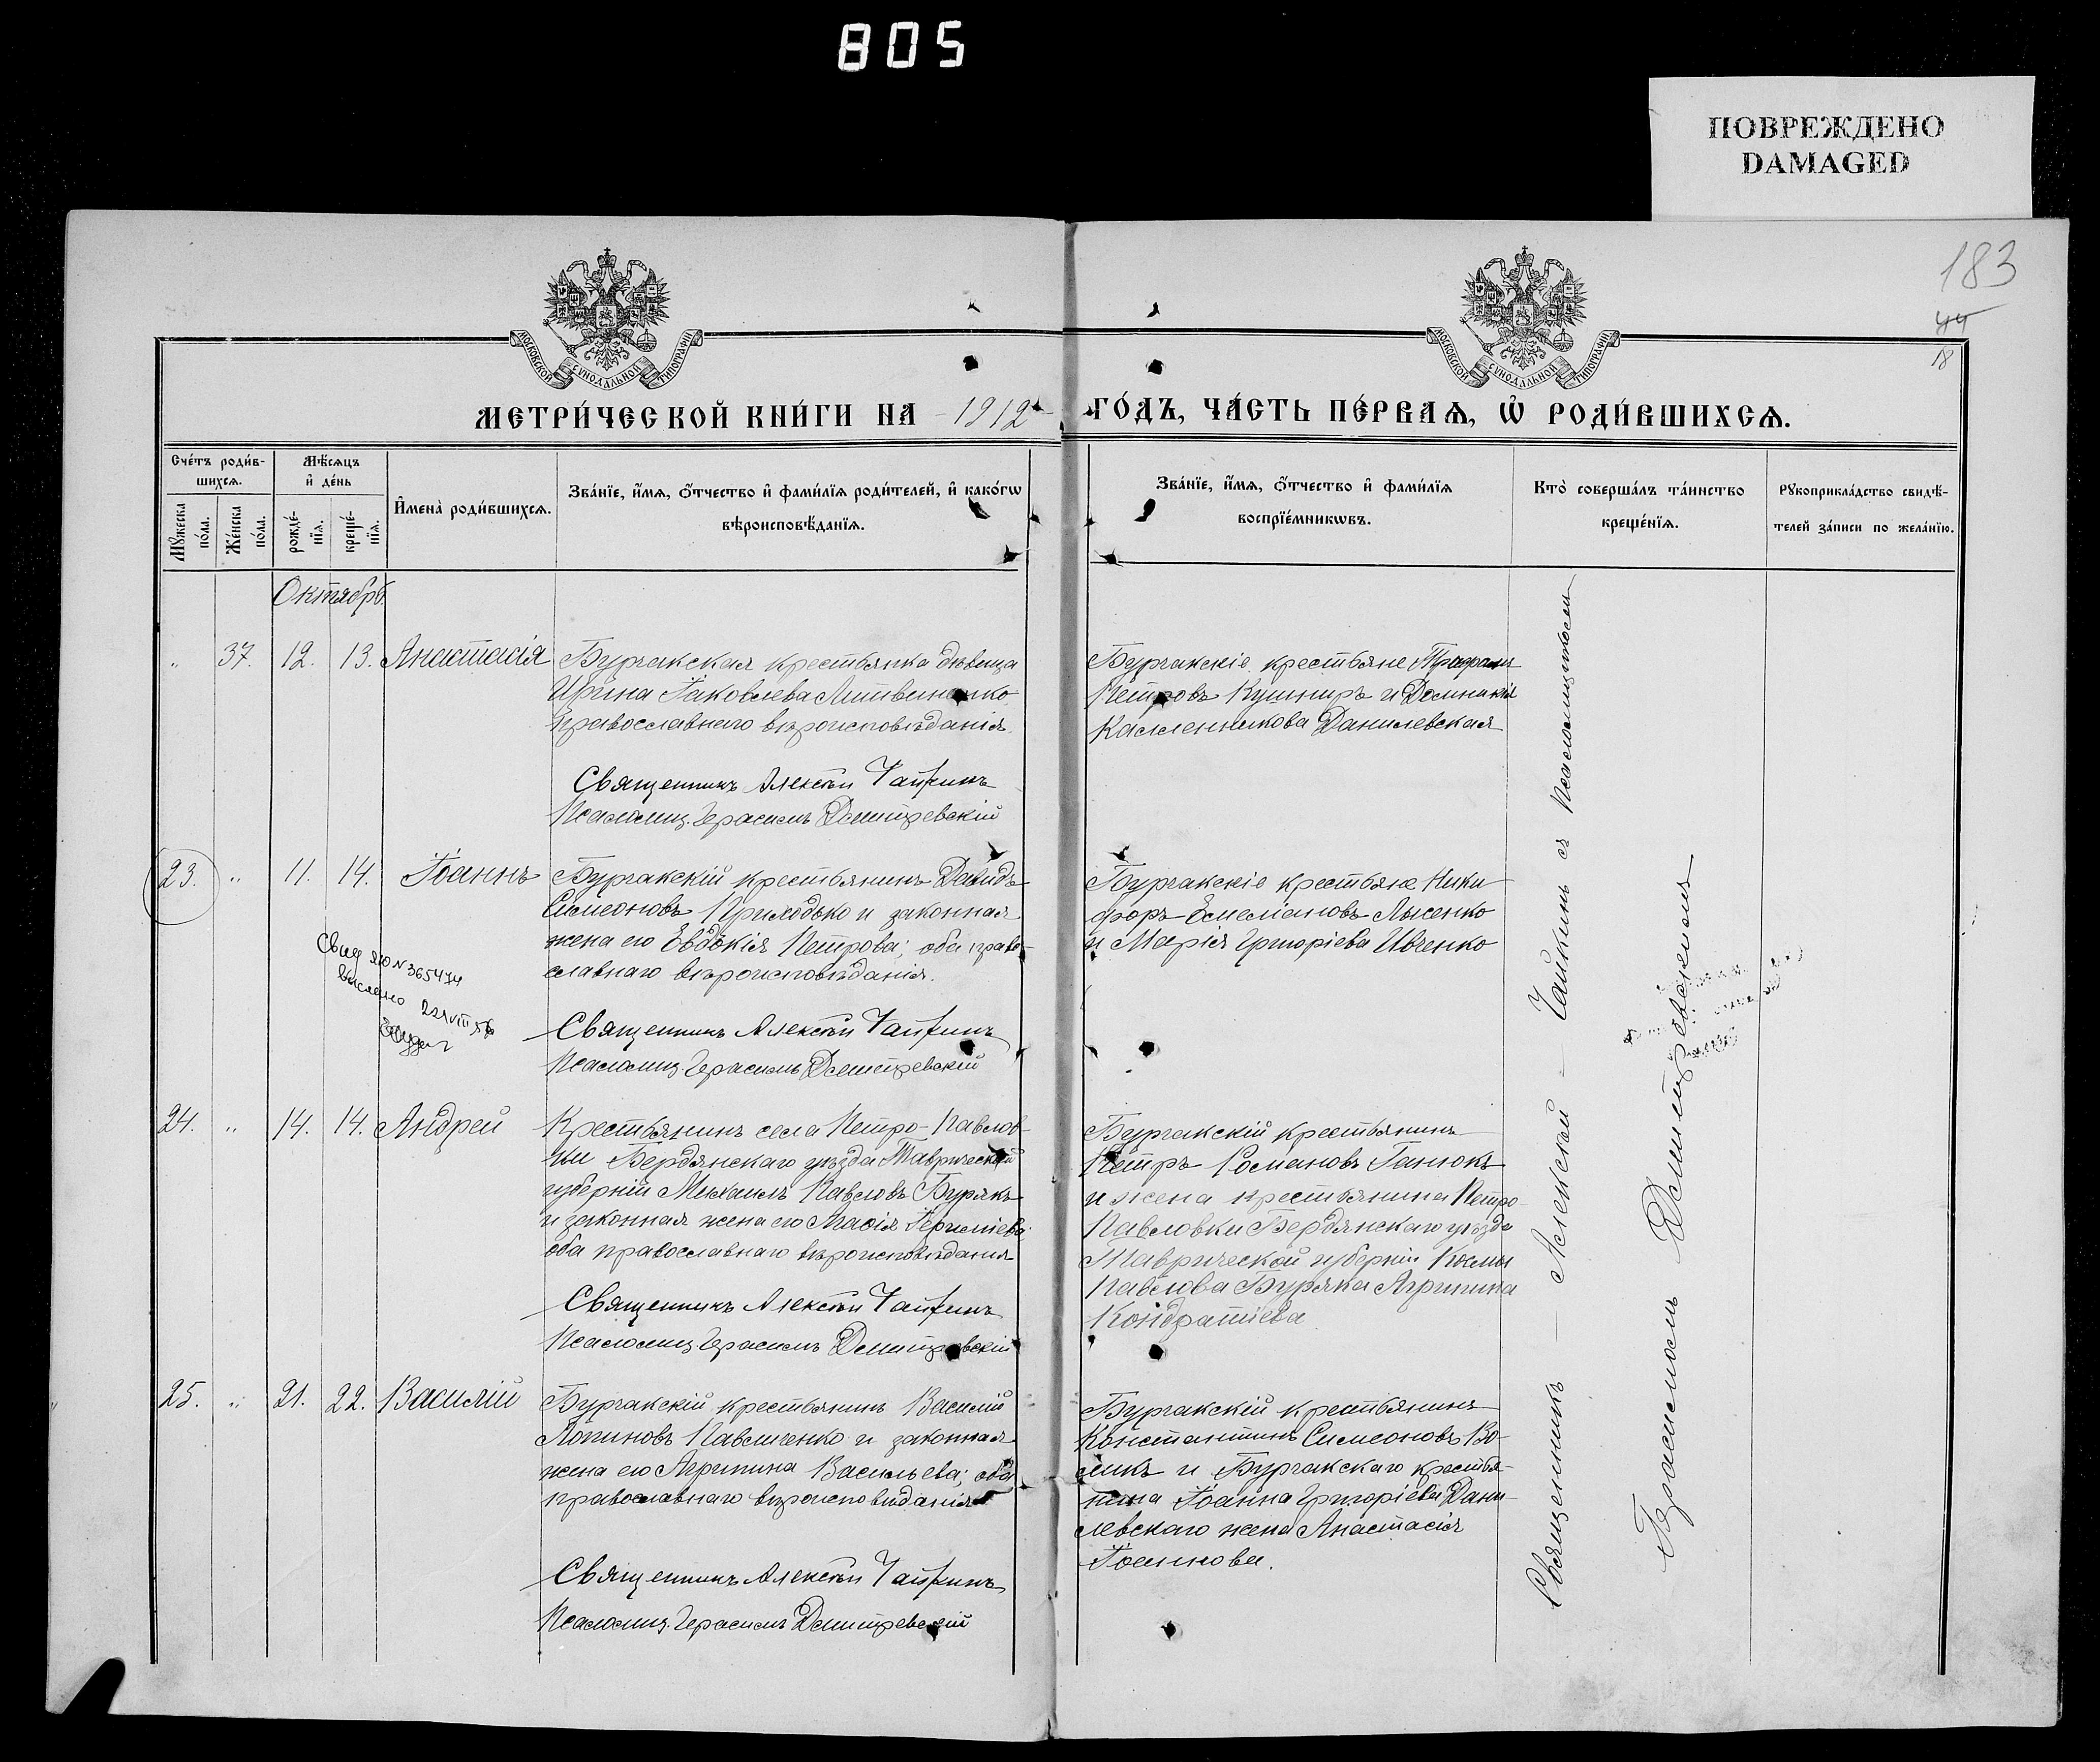 805
ПОВРЕЖДЕНО
DAMAGED
183
44
18
МОСКОВСКОЙ СУНОДАЛЬНОЙ ТИПОГРАФІИ
МОСКОВСКОЙ СУНОДАЛЬНОЙ ТИПОГРАФІИ
МЕТРИ́ЧЕСКОЙ КНИ́ГИ НА 1912 ГО́ДЪ, ЧА́СТЬ ПЕ́РВАѦ, Ѡ҆ РОДИ́ВШИХСѦ.
Сче́тъ роди́в-
шихсѧ.
Мꙋжеска
по́ла.
Же́нска
по́ла.
Мѣ́сѧцъ
и҆ де́нь
рожде́-
нїѧ.
креще́-
нїѧ.
И҆мена̀ роди́вшихсѧ.
Зва́нїе, и҆́мѧ, ѻ҆́тчество и҆ фами́лїѧ роди́телей, и҆ како́гѡ
вѣроисповѣ́данїѧ.
Зва́нїе, и҆́мѧ, ѻ҆́тчество и҆ фами́лїѧ
воспрїе́мникѡвъ.
Кто̀ соверша́лъ та́инство
креще́нїѧ.
Рꙋкоприкла́дство свидѣ́-
телей за́писи по жела́нїю.
Октябрь
" 37. 12. 13. Анастасія
Бурчакская крестьянка дѣвица
Ирина Іаковлева Литвиненко
православнаго вѣроисповѣданія.
Священникъ Алексѣй Чайкинъ
Псаломщ. Герасимъ Дмитревскій
Бурчакскіе крестьяне
Петровъ Кушниръ и Домникія
Каллениикова Данилевская
23. " 11. 14. Іоаннъ
Бурчакскій крестьянинъ Давидъ
Симеоновъ Приходько и законная
жена его Евдокія Петрова; оба право-
славнаго вѣроисповѣданія.
Священникъ Алексѣй Чайкинъ
Псаломщ. Герасимъ Дмитревскій
Бурчакскіе крестьяне Ники-
форъ Емеліановъ Лысенко
и Марія Григоріева Ивченко
Свид ЯЮ N 365474
выслано 22/VIII 56
24. " 14. 14. Андрей
Крестьянинъ села Петро-Павлов-
ки Бердянскаго уѣзда Таврической
губерніи Михаилъ Павловъ Бурякъ
и законная жена его Марія
оба православнаго вѣроисповѣданія
Священникъ Алексѣй Чайкинъ
Псаломщ. Герасимъ Дмитревскій
Бурчакскій крестьянинъ
Петръ Романовъ Ганюкъ
и жена крестьянина Петро-
Павловки Бердянскаго уѣзда
Таврической губерніи Космы
Павлова Буряка Агрипина
Кондратіева
25. " 21. 22. Василій
Бурчакскій крестьянинъ Василій
Логиновъ Павличенко и законная
жена его Агрипина Васильева; оба
православнаго вѣроисповѣданія
Священникъ Алексѣй Чайкинъ
Псаломщ. Герасимъ Дмитревскій
Бурчакскій крестьянинъ
Константинъ Симеоновъ Во-
ликъ и Бурчакскаго крестья-
нина Іоанна Григоріева Дани-
левскаго жена Анастасія
Іоаннова.
Священникъ — Алексѣй — Чайкинъ съ псаломщикомъ
Герасимомъ Дмитревскимъ